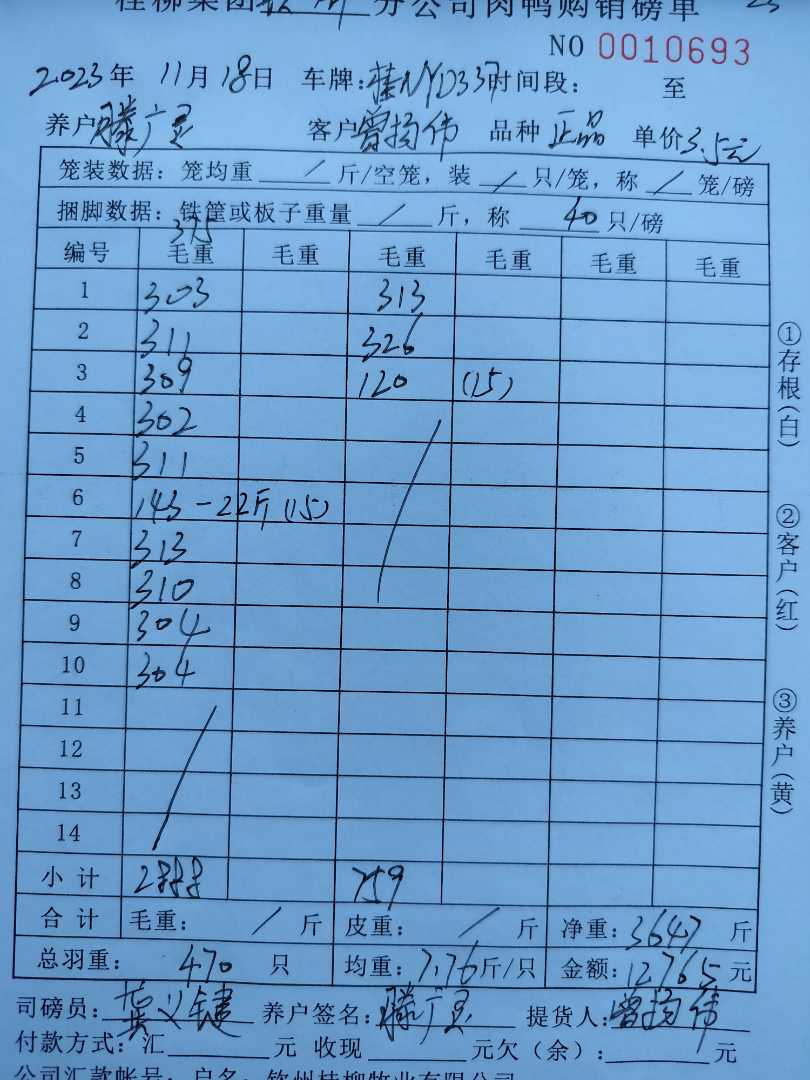 桂柳集团钦州分公司肉鸭购销磅单
NO 0010693
2023年 11月 18日 车牌:桂NYD337 时间段: 至
养户 滕广灵 客户 曾扬伟 品种 正品 单价 3.5元
笼装数据: 笼均重 / 斤/空笼, 装 / 只/笼, 称 / 笼/磅
捆脚数据: 铁筐或板子重量 / 斤, 称 40 只/磅
375
编号 毛重 毛重 毛重 毛重 毛重 毛重
1 303 313
2 311 326
3 309 120 (15)
4 302
5 311
6 143-22斤(15)
7 313
8 310
9 304
10 304
11
12
13
14
小计 2888 759
合计 毛重: / 斤 皮重: / 斤 净重: 3647 斤
总羽重: 470 只 均重: 7.76 斤/只 金额: 12765 元
司磅员: 龚义键 养户签名: 滕广灵 提货人: 曾扬伟
付款方式: 汇 元 收现 元欠(余): 元
公司汇款帐号: 户名: 钦州桂柳牧业有限公司
①存根(白) ②客户(红) ③养户(黄)